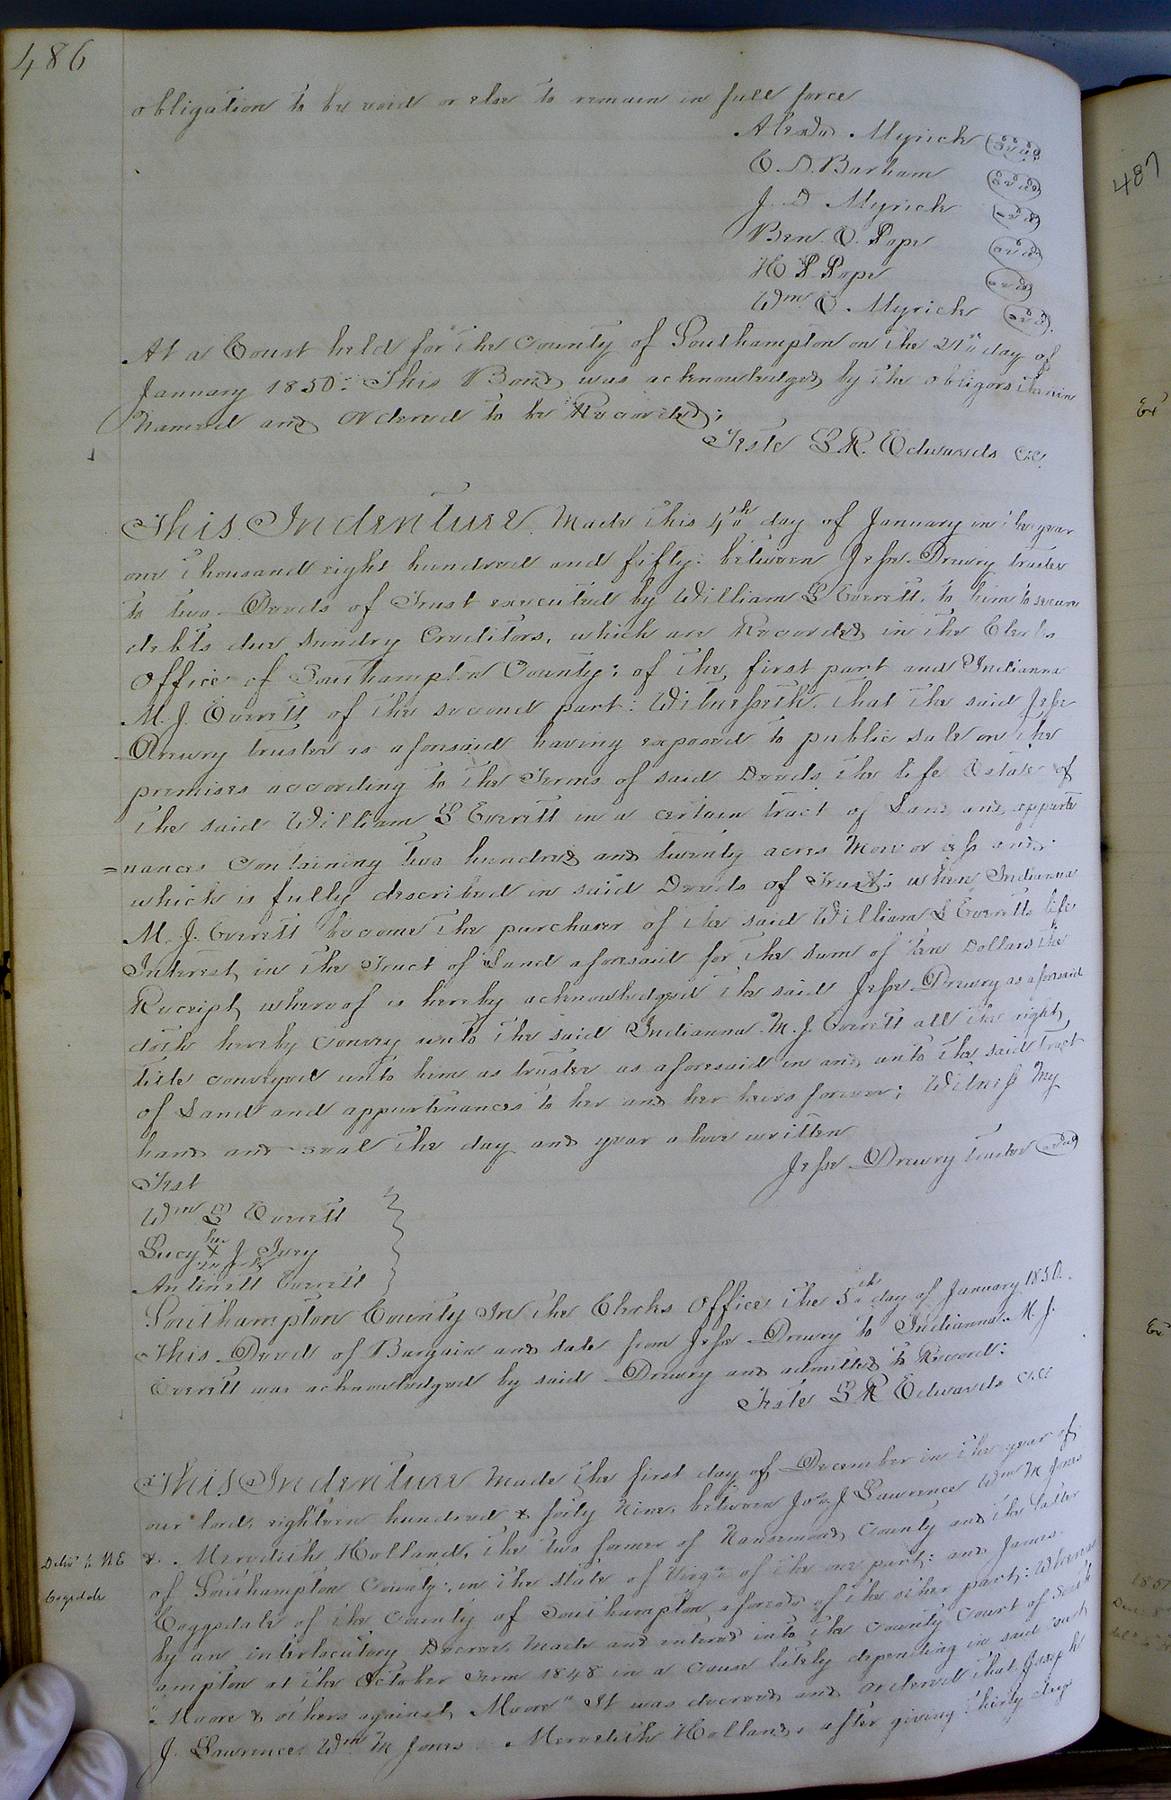 486
obligation to be void or else to remain in full force
Alexdr Myrick (Seal)
C. D. Barham (Seal)
J. D Myrick (Seal)
Ben. C. Pope (Seal)
H P Pope (Seal)
Wm C Myrick (Seal)
At a Court held for the County of Southampton on the 21st day of
January 1850: This Bond was acknowledged by the obligors therein
named and ordered to be Recorded;
Teste L. R. Edwards CC.
This Indenture Made this 4th day of January in the year
one thousand eight hundred and fifty: between Jesse Drewry trustee
to two Deeds of Trust executed by William L Everett, to him to secure
debts due sundry Creditors, which are Recorded in the Clerks
Office of Southampton County: of the first part and Indianna
M. J. Everett of the second part: Witnesseth. that the said Jesse
Drewry trustee as aforesaid having exposed to public sale on the
premises according to the Terms of said Deeds the life Estate of
the said William L Everett in a certain tract of Land and appurte
=nances Containing two hundred and twenty acres More or less and
which is fully described in said Deeds of Trust: when Indianna
M. J. Everett become the purchaser of the said William L Everetts life
Interest in the Tract of Land aforesaid for the sum of ten Dollars the
Receipt whereof is hereby acknowledged the said Jesse Drewry as aforesaid
doth hereby Convey unto the said Indianna M. J. Everett all the right
title conveyed unto him as trustee as aforesaid in and unto the said tract
of Land and appurtenances to her and her heirs forever; Witness My
hand and seal the day and year above written
Jesse Drewry trustee (Seal)
Test
Wm L Everett
Lucy J Ivey
her
X
mark
Antinett Everett
Southampton County In the Clerks Office the 5th day of January 1850.
This Deed of Bargain and sale from Jesse Drewry to Indianna M. J.
Everett was acknowledged by said Drewry and admitted to Record:
Teste L R Edwards CC
This Indenture Made the first day of December in the year of
our lord, eighteen hundred & forty Nine, between Jos J Lawrence Wm M Jones
& Meredith Holland, the two former of Nansemond County and the latter
of Southampton County, in the state of Virga of the one part: and James
Coggsdale of the County of Southampton aforesd of the other part: Whereas
by an interlocutory Decree, Made and entered into the County Court of South
ampton at the October Term 1848 in a Cause lately depending in said Court
"Moore & others against Moore" It was decreed and ordered that Joseph
J. Lawrence Wm M Jones Meredith Holland, after giving thirty days
487